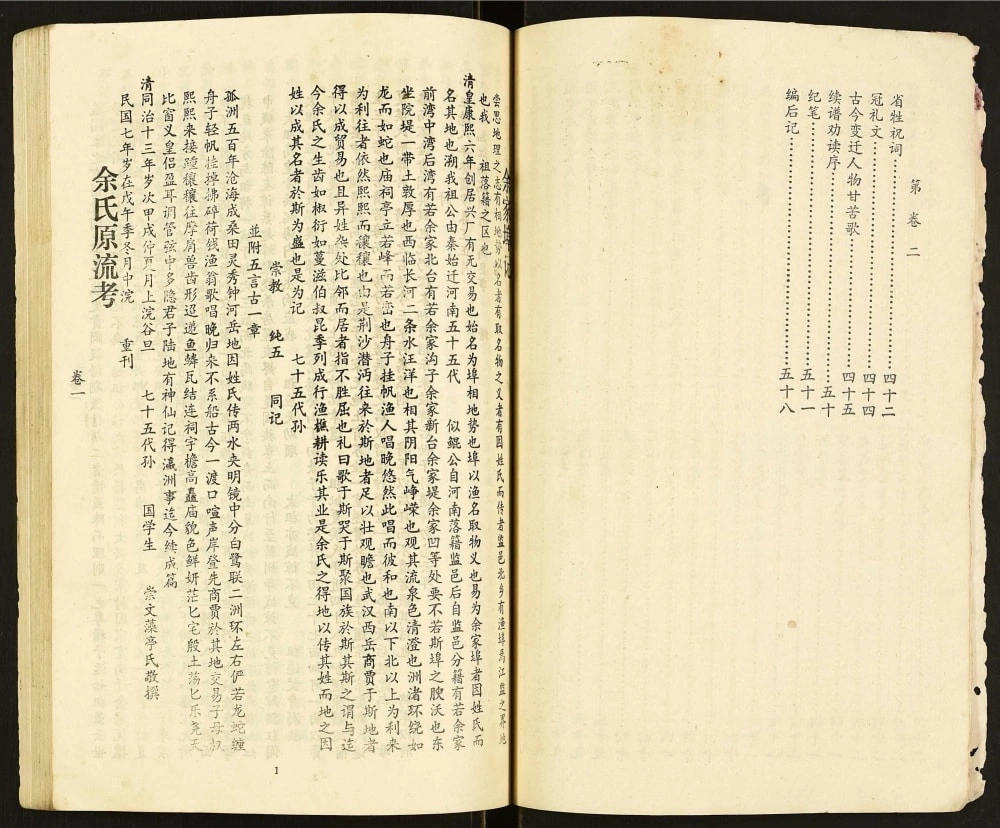 第 卷 二
省牲祝词……………………四十二
冠礼文……………………四十四
古今变迁人物甘苦歌……………………四十五
续谱劝读序……………………五十
纪笔……………………五十一
编后记……………………五十八
余家埠记
尝思地理之志有相地势以名者有取名物之义者有因姓氏而传者监邑北乡有渔埠焉江监之界地
也我 祖落籍之区也
清皇康熙六年创居兴厂有无交易也始名为埠相地势也埠以渔名取物义也易为余家埠者因姓氏而
名其地也溯我祖公由秦始迁河南五十五代 似鲲公自河南落籍监邑后自监邑分籍有若余家
前湾中湾后湾有若余家北台有若余家沟子余家新台余家堤余家凹等处要不若斯埠之腴沃也东
坐院堤一带土敦厚也西临长河二条水汪洋也相其阴阳气峥嵘也观其流泉色清澄也洲渚环绕如
龙而如蛇也庙祠亭立若峰而若峦也舟子挂帆渔人唱晚悠然此唱而彼和也南以下北以上为利来
为利往者依然熙熙而攘穰也由是荆沙潜沔往来於斯地者足以壮观瞻也武汉西岳商贾于斯地者
得以成贸易也且异姓杂处比邻而居者指不胜屈也礼曰歌于斯哭于斯聚国族於斯其斯之谓与迄
今余氏之生齿如椒衍如蔓滋伯叔昆季列成行渔樵耕读乐其业是余氏之得地以传其姓而地之因
姓以成其名者於斯为盛也是为记
崇教 纯五 同记 七十五代孙
並附五言古一章
孤洲五百年沧海成桑田灵秀钟河岳地因姓氏传两水夹明镜中分白鹭联二洲环左右俨若龙蛇缠
舟子轻帆挂掉拂碎荷钱渔翁歌唱晚归来不系船古今一渡口喧声岸登先商贾於其地交易子母权
熙熙来接踵穰穰往摩肩兽齿形迢遞鱼鳞瓦结连祠宇檐高矗庙貌色鲜妍茫匕宅殷土荡匕乐尧天
比富义皇侣盈耳调管弦中多隐君子陆地有神仙记得瀛洲事迄今续成篇
清同治十三年岁次甲戌仲夏月上浣谷旦 七十五代孙 国学生 崇文藻亭氏敬撰
民国七年岁在戊午季冬月中浣 重刊
余氏原流考
卷一
1